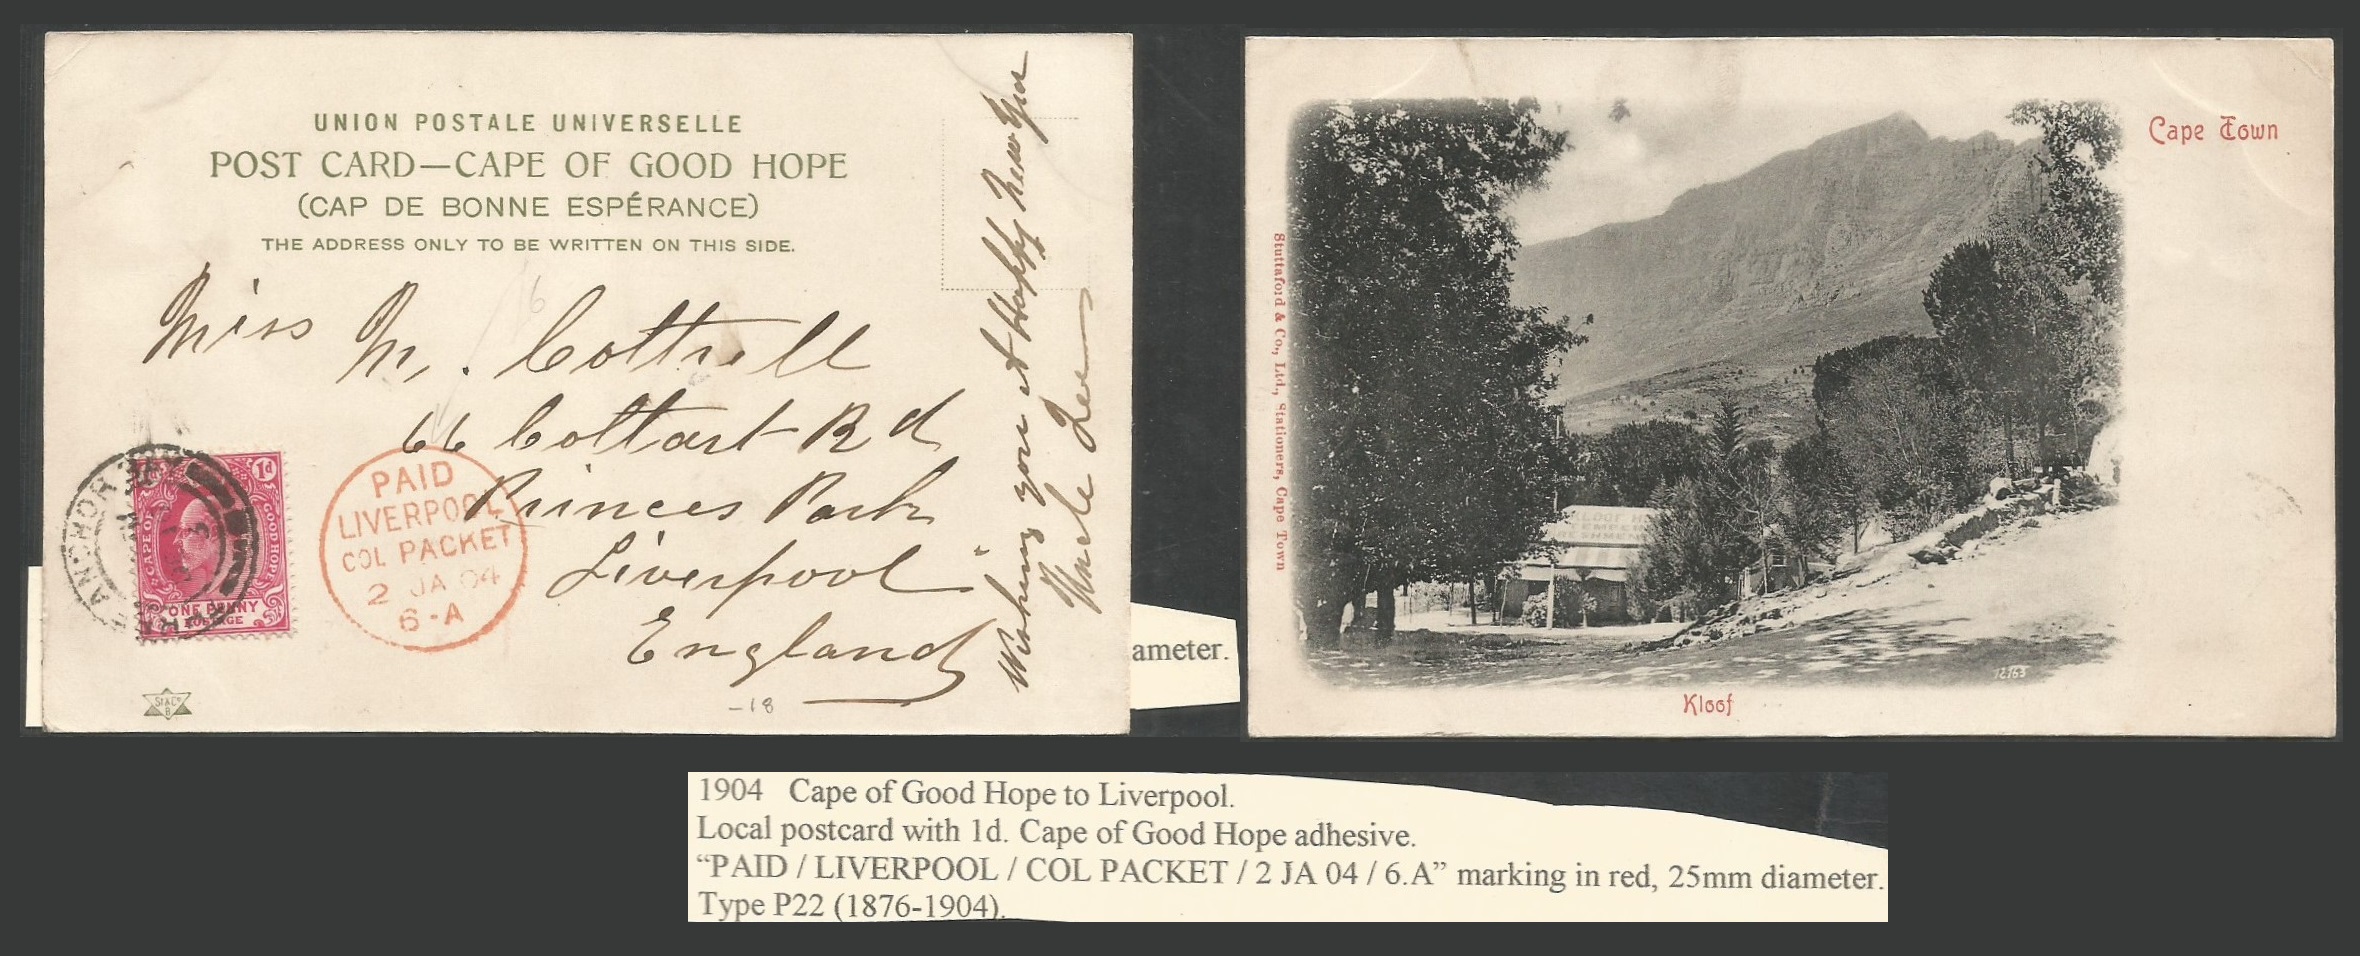 UNION POSTALE UNIVERSELLE
POST CARD—CAPE OF GOOD HOPE
(CAP DE BONNE ESPÉRANCE)
THE ADDRESS ONLY TO BE WRITTEN ON THIS SIDE.
Miss M. Cottrell
66 Coltart Rd
Princes Park
Liverpool
England
Wishing you A Happy New Year
Uncle Lee
1d
CAPE OF GOOD HOPE
ONE PENNY
POSTAGE
ANCHOR
PAID
LIVERPOOL
COL PACKET
2 JA 04
6-A
St & Co
B
-18
16
ameter.
Cape Town
Stuttaford & Co., Ltd., Stationers, Cape Town
KLOOF
12163
Kloof
1904 Cape of Good Hope to Liverpool.
Local postcard with 1d. Cape of Good Hope adhesive.
“PAID / LIVERPOOL / COL PACKET / 2 JA 04 / 6.A” marking in red, 25mm diameter.
Type P22 (1876-1904).